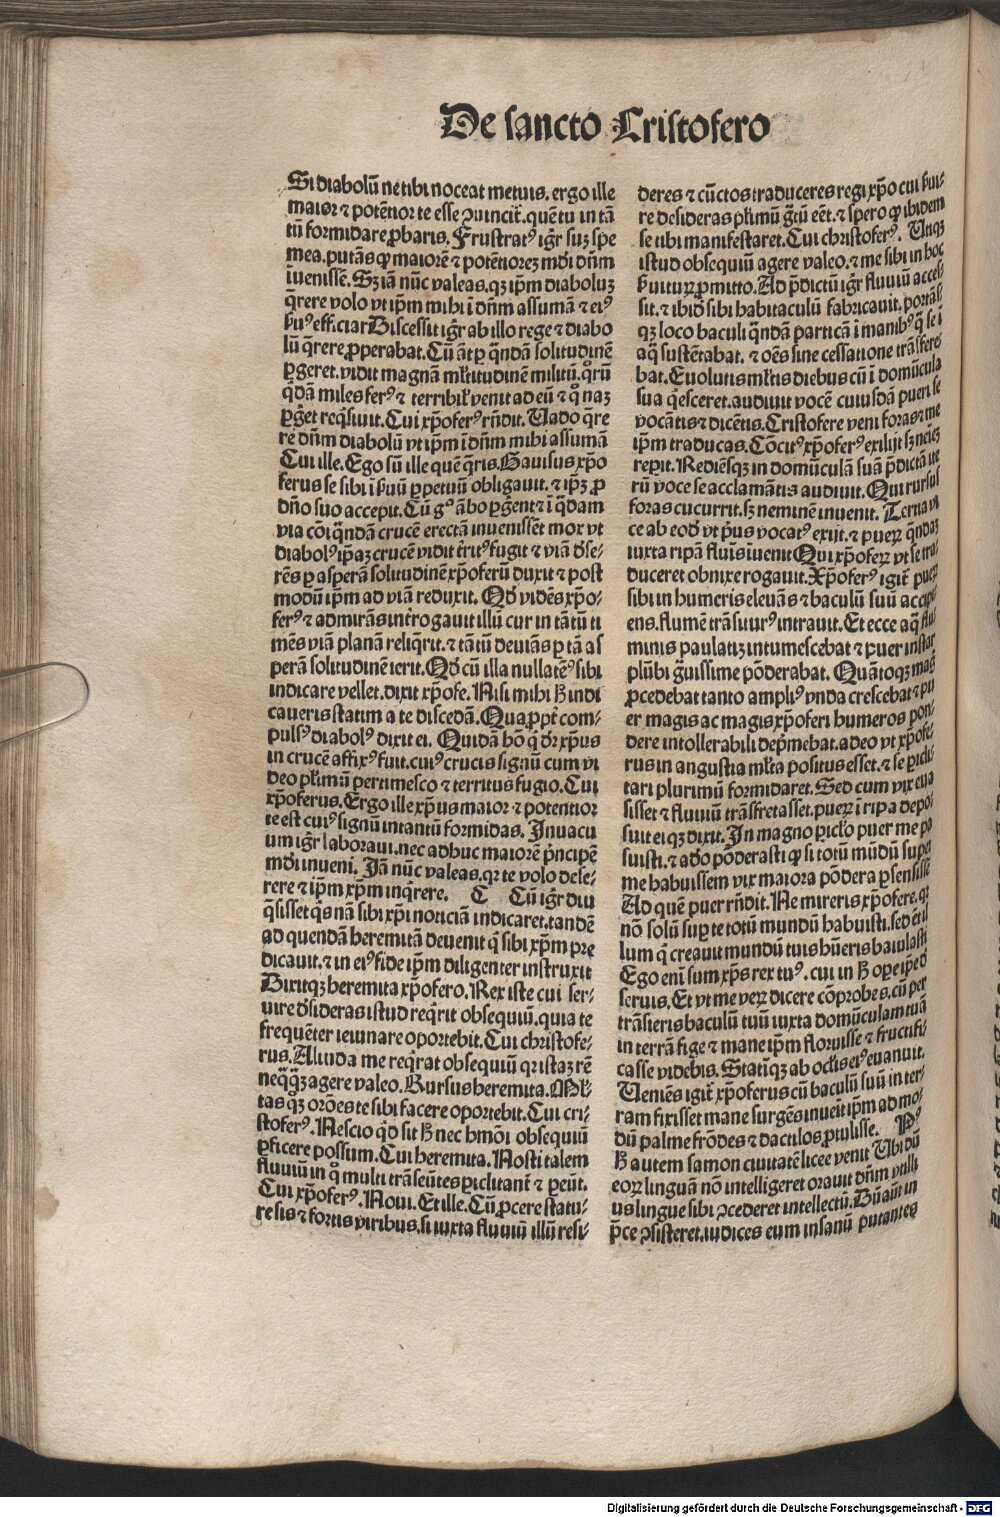 De sancto Cristofero
Si diabolū ne tibi noceat metuis. ergo ille
maior ⁊ potētior te esse ꝯuincit̄. quē tu in tā
tū formidare ꝓbaris. Frustratꝰ igr̄ suꝫ spe
mea. putās ꝙ maiorē ⁊ potētioreꝫ mūdi dn̄m
īuenissē. Sꝫ iā nūc valeas. qꝫ ip̄m diaboluꝫ
q̄rere volo vt ip̄m mihi ī dn̄m assumā ⁊ eiꝰ
ẜuꝰ efficiar Discessit igr̄ ab illo rege ⁊ diabo
lū q̄rere ꝓperabat. Cū āt ꝑ q̄ndā solitudinē
ꝑgeret. vidit magnā ml̄titudinē militū. q̄rū
q̄dā miles ferꝰ ⁊ terribil̓ venit ad eū ⁊ qͦ naꝫ
ꝑget req̄siuit. Cui xp̄oferꝰ rn̄dit. Uado q̄re
re dn̄m diabolū vt ip̄m ī dn̄m mihi assumā
Cui ille. Ego sū ille quē q̄ris. Gauisus xp̄o
ferus se sibi ī ẜuū ꝑpetuū obligauit. ⁊ ip̄ꝫ ꝓ
dn̄o suo accepit. Cū gͦ ābo ꝑgēnt ⁊ ī q̄dam
via cōi q̄ndā crucē erectā inuenissēt mox vt
diabolꝰ ip̄aꝫ crucē vidit t̄ritꝰ fugit ⁊ viā d̄se-
rēs ꝑ asperā solitudinē xp̄oferū duxit ⁊ post
modū ip̄m ad viā reduxit. Qd̄ vidēs xp̄o-
ferꝰ ⁊ admirās int̄rogauit illū cur in tātū ti
mēs viā planā reliq̄rit. ⁊ tātū deuiās ꝑ tā as
perā solitudinē ierit. Qd̄ cū illa nullatēꝰ sibi
indicare vellet. dixit xp̄ofe. Nisi mihi ħ indi
caueris statim a te discedā. Quaꝓpt̄ com-
pulsꝰ diabolꝰ dixit ei. Quidā hō q̄ dr̄ xp̄us
in crucē affixꝰ fuit. cuiꝰ crucis signū cum vi
deo pl̄imū pertimesco ⁊ territus fugio. Cui
xp̄oferus. Ergo ille xp̄us maior ⁊ potentior
te est cuiꝰ signū intantū formidas. Inuacu
um igr̄ laboraui. nec adhuc maiorē p̄ncipē
mūdi inueni. Iā nūc valeas. qr te volo dese-
rere ⁊ ip̄m xp̄m inq̄rere. C Cū igr̄ diu
q̄sisset q̄s nā sibi xp̄i noticiā indicaret. tandē
ad quendā heremitā deuenit q̄ sibi xp̄m pre
dicauit. ⁊ in eiꝰ fide ip̄m diligenter instruxit
Dixitqꝫ heremita xp̄ofero. Rex iste cui ser-
uire d̄sideras istud req̄rit obsequiū. quia te
frequēter ieiunare oportebit. Cui christofe-
rus. Aliud a me req̄rat obsequiū qr istaꝫ rē
neq̄q̄ꝫ agere valeo. Rursus heremita. Ml̄-
tas qꝫ orōes te sibi facere oportebit. Cui cri-
stoferꝰ. Nescio qd̄ sit ħ nec hmōi obsequiū
ꝑficere possum. Cui heremita. Nosti talem
fluuiū in qͦ multi trāseūtes ꝑiclitant̄ ⁊ peūt.
Cui xp̄oferꝰ. Noui. Et ille. Cū ꝓcere statu-
re sis ⁊ fortis viribus. si iuxta fluuiū illū resi-
deres ⁊ cūctos traduceres regi xp̄o cui ẜui-
re desideras pl̄imū gͣtū eēt. ⁊ spero ꝙ ibidem
se tibi manifestaret. Cui christoferꝰ. Utiqꝫ
istud obsequiū agere valeo. ⁊ me sibi in hoc
ẜuiturꝝ ꝓmitto. Ad p̄dictū igr̄ fluuiū acces-
sit. ⁊ ibid̄ sibi habitaculū fabricauit. portās-
qꝫ loco baculi q̄ndā particā ī manibꝰ q̄ se ī
aq̄ sustētabat. ⁊ oēs sine cessatione trāsfere-
bat. Euolutis ml̄tis diebus cū ī domūcula
sua q̄esceret. audiuit vocē cuiusdā pueri se
vocātis ⁊ dicētis. Cristofere veni foras ⁊ me
ip̄m traducas. Cōcitꝰ xp̄oferꝰ exilijt sꝫ neīeꝫ
reꝑit. Rediēsqꝫ in domūculā suā p̄dictā ite
rū voce se acclamātis audiuit. Qui rursus
foras cucurrit. sꝫ neminē inuenit. Tertia vi
ce ab eod̄ vt p̄us vocatꝰ exijt. ⁊ pueꝝ q̄ndaꝫ
iuxta ripā fluīs īuenit Qui xp̄oferꝝ vt se tra
duceret obnixe rogauit. Xp̄oferꝰ igit̄ pueꝝ
sibi in humeris eleuās ⁊ baculū suū accipi-
ens. flumē trāsiturꝰ intrauit. Et ecce aq̄ flu
minis paulatiꝫ intumescebat ⁊ puer instar
plūbi gͣuissime pōderabat. Quātoqꝫ magͥ
ꝓcedebat tanto ampliꝰ vnda crescebat ⁊ pu
er magis ac magis xp̄oferi humeros pon-
dere intollerabili dep̄mebat. adeo vt xp̄ofe-
rus in angustia ml̄ta positus esset. ⁊ se ꝑicli-
tari plurimū formidaret. Sed cum vix eua
sisset ⁊ fluuiū trāsfretasset. pueꝝ ī ripa depo-
suit eiqꝫ dixit. In magno ꝑicl̓o puer me po
suisti. ⁊ adō pōderasti ꝙ si totū mūdū super
me habuissem vix maiora pōdera ꝑsensissē
Ad quē puer rn̄dit. Ne mireris xp̄ofere. qr
nō solū suꝑ te totū mundū habuisti. sed etil
lum q̄ creauit mundū tuis hūeris baiulasti
Ego enī sum xp̄s rex tuꝰ. cui in ħ oꝑe ip̄e d̄
seruis. Et vt me verꝝ dicere cōprobes. cū per
trāsieris baculū tuū iuxta domūculam tuā
in terrā fige ⁊ mane ip̄m floruisse ⁊ fructifi-
casse videbis. Statimqꝫ ab ocl̓is eiꝰ euanuit.
Ueniēs igit̄ xp̄oferus cū baculū suū in ter-
ram fixisset mane surgēs inueīt ip̄m ad mo-
dū palme frōdes ⁊ dactilos ꝓtulisse. Pꝰ
ħ autem samon ciuitatē licee venit Ubi dū
eoꝝ linguā nō intelligeret orauit dn̄m vt illi
us lingue sibi ꝯcederet intellectū. Dū aūt in
p̄ce ꝯsisteret. iudices eum insanū putantes
Digitalisierung gefördert durch die Deutsche Forschungsgemeinschaft - DFG